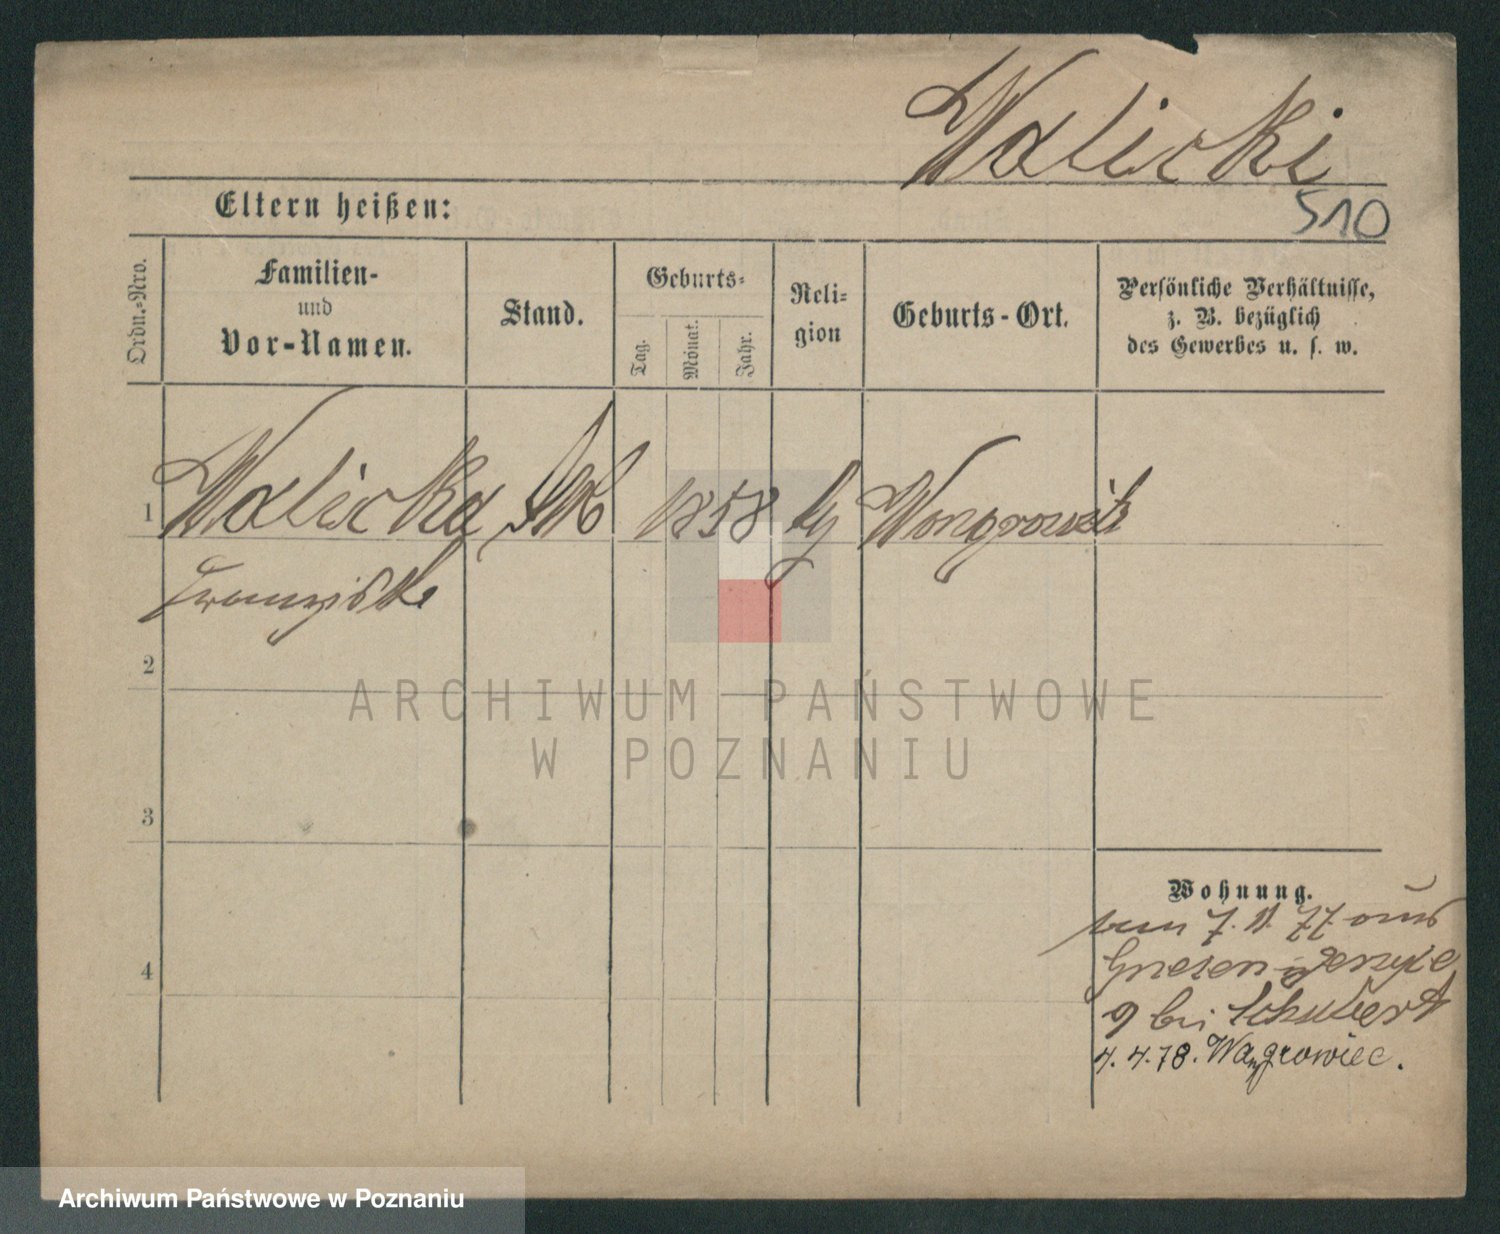 Walicki
Eltern heißen:
510
Ordn.-Nro.
Familien-
und
Vor-Namen.
Stand.
Geburts-
Tag.
Monat.
Jahr.
Reli-
gion
Geburts-Ort.
Persönliche Verhältnisse,
z. B. bezüglich
des Gewerbes u. s. w.
1
Walicka
1858
Wongrowitz
Franziska
2
ARCHIWUM PAŃSTWOWE
W POZNANIU
3
Wohnung.
7. 11. 77 aus
4
Gnesen
9 bei Schubert
4. 4. 78. Wągrowiec.
Archiwum Państwowe w Poznaniu